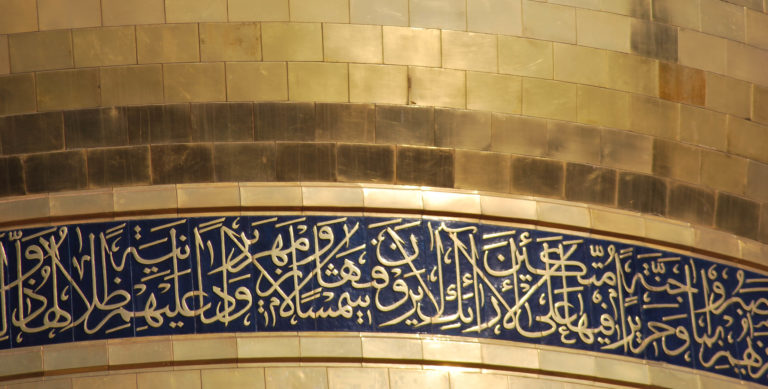 بِمَا صَبَرُوا جَنَّةً وَحَرِيرًا مُتَّكِئِينَ فِيهَا عَلَى الْأَرَائِكِ لَا يَرَوْنَ فِيهَا شَمْسًا وَلَا زَمْهَرِيرًا وَدَانِيَةً عَلَيْهِمْ ظِلَالُهَا